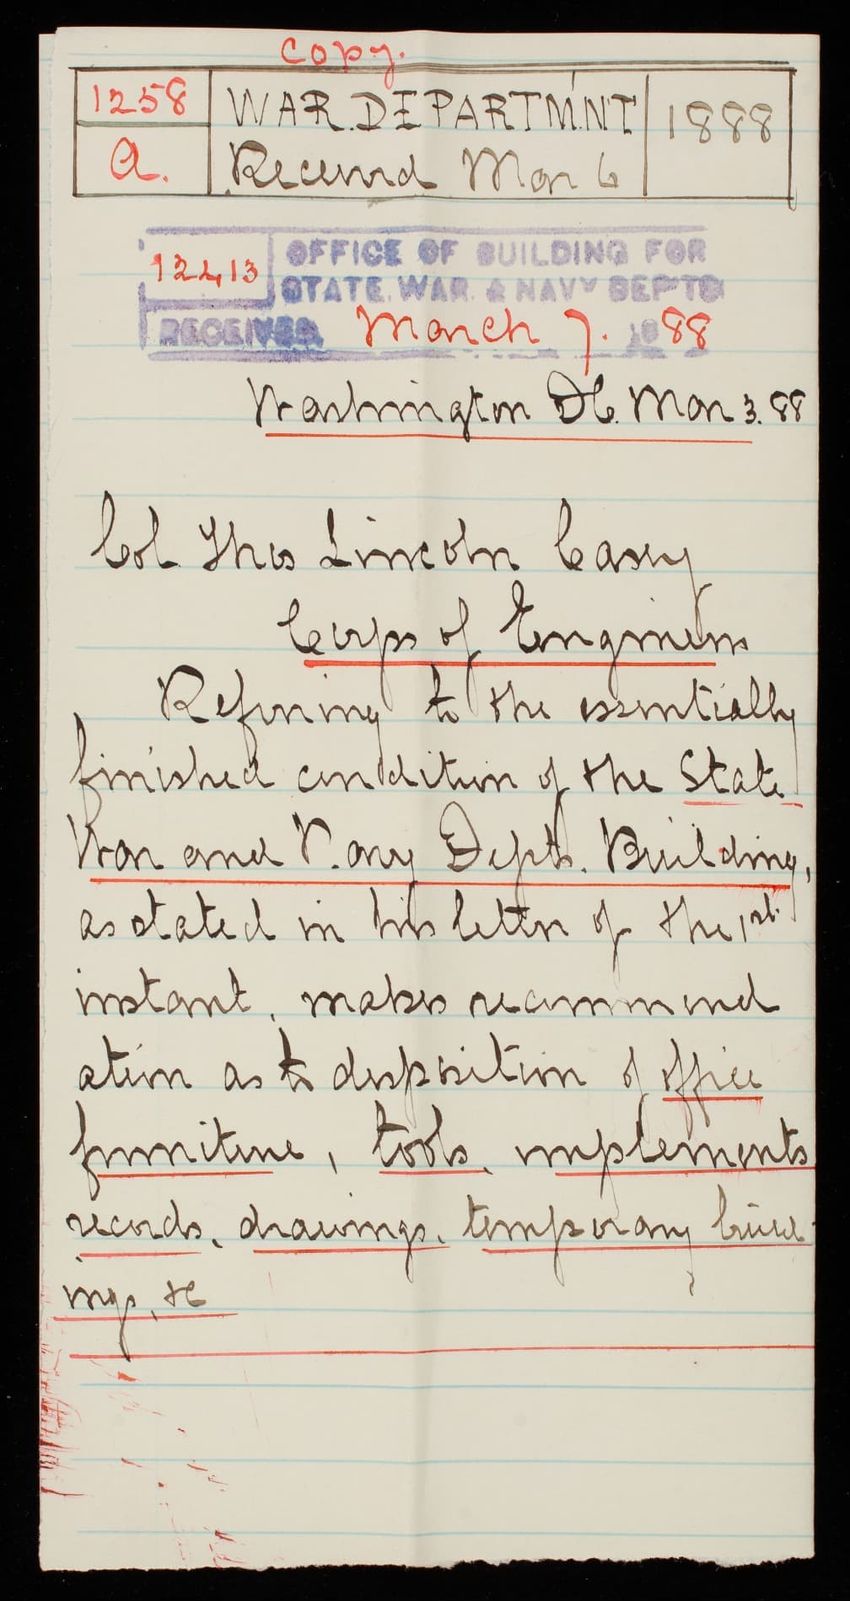 Copy.
1258
A.
WAR.DEPARTMNT
Received Mar 6
1888
12413
OFFICE OF BUILDING FOR
STATE, WAR & NAVY DEPTS
RECEIVED March 7. 1888
Washington DC. Mar 3. 88
Col Thos Lincoln Casey
Corps of Engineers
Refering to the essentially
finished condition of the State
War and Navy Depts. Building,
as stated in his letter of the 1st
instant, makes recommend
ation as to disposition of office
furniture, tools, implements
records, drawings, temporary build-
ings, &c